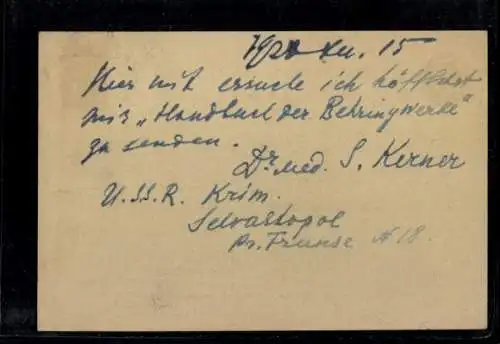 XII. 15
Hier mit ersuche ich höfflichst
mir „Handbuch der Behringwerke"
zu senden.
Dr. med. S. Kerner
U.S.S.R. Krim.
Sewastopol
Pr. Frunse N 18.